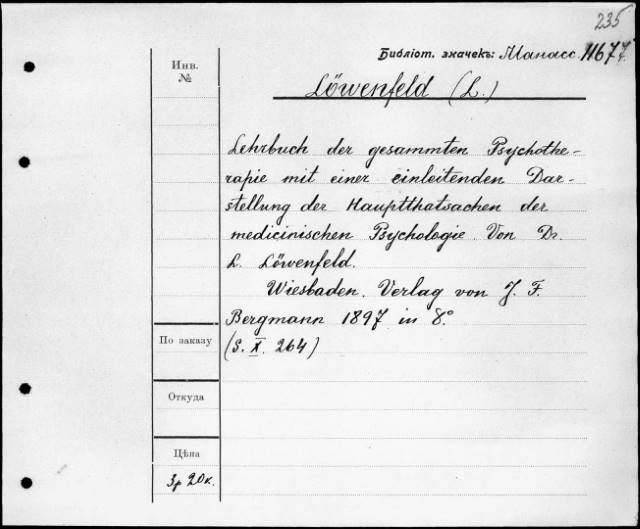 235
Библіот. значекъ: Манасс. 11677.
Инв.
№
Löwenfeld (L.)
Lehrbuch der gesammten Psychothe-
rapie mit einer einleitenden Dar-
stellung der Hauptthatsachen der
medicinischen Psychologie. Von Dr.
L. Löwenfeld.
Wiesbaden. Verlag von J. F.
Bergmann 1897 in 8°.
(S. X. 264)
По заказу
Откуда
Цѣна
3р 20к.